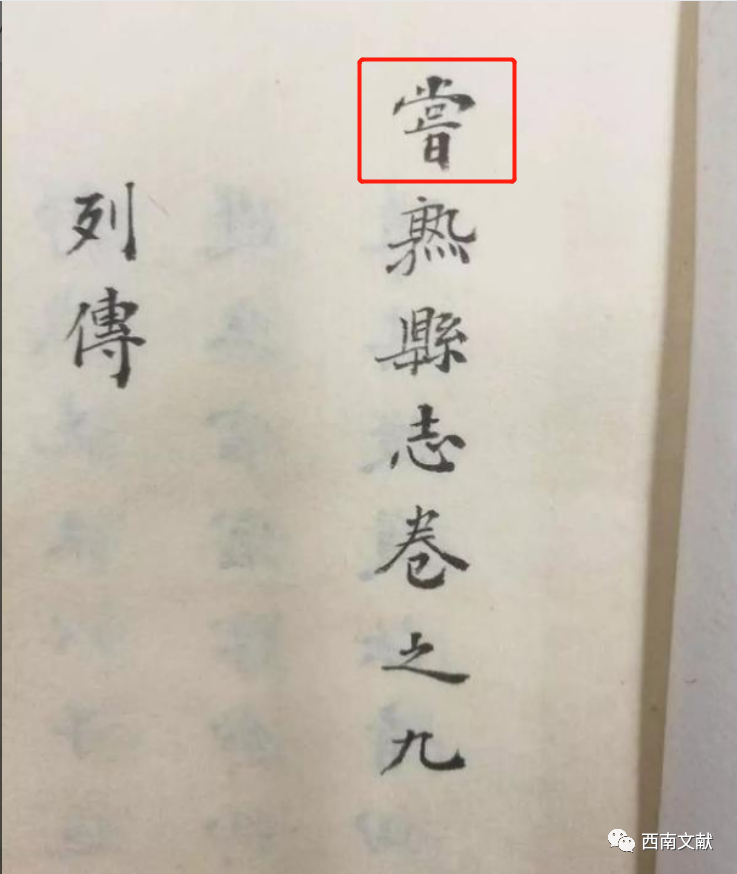 嘗熟縣志卷之九
列傳
西南文献